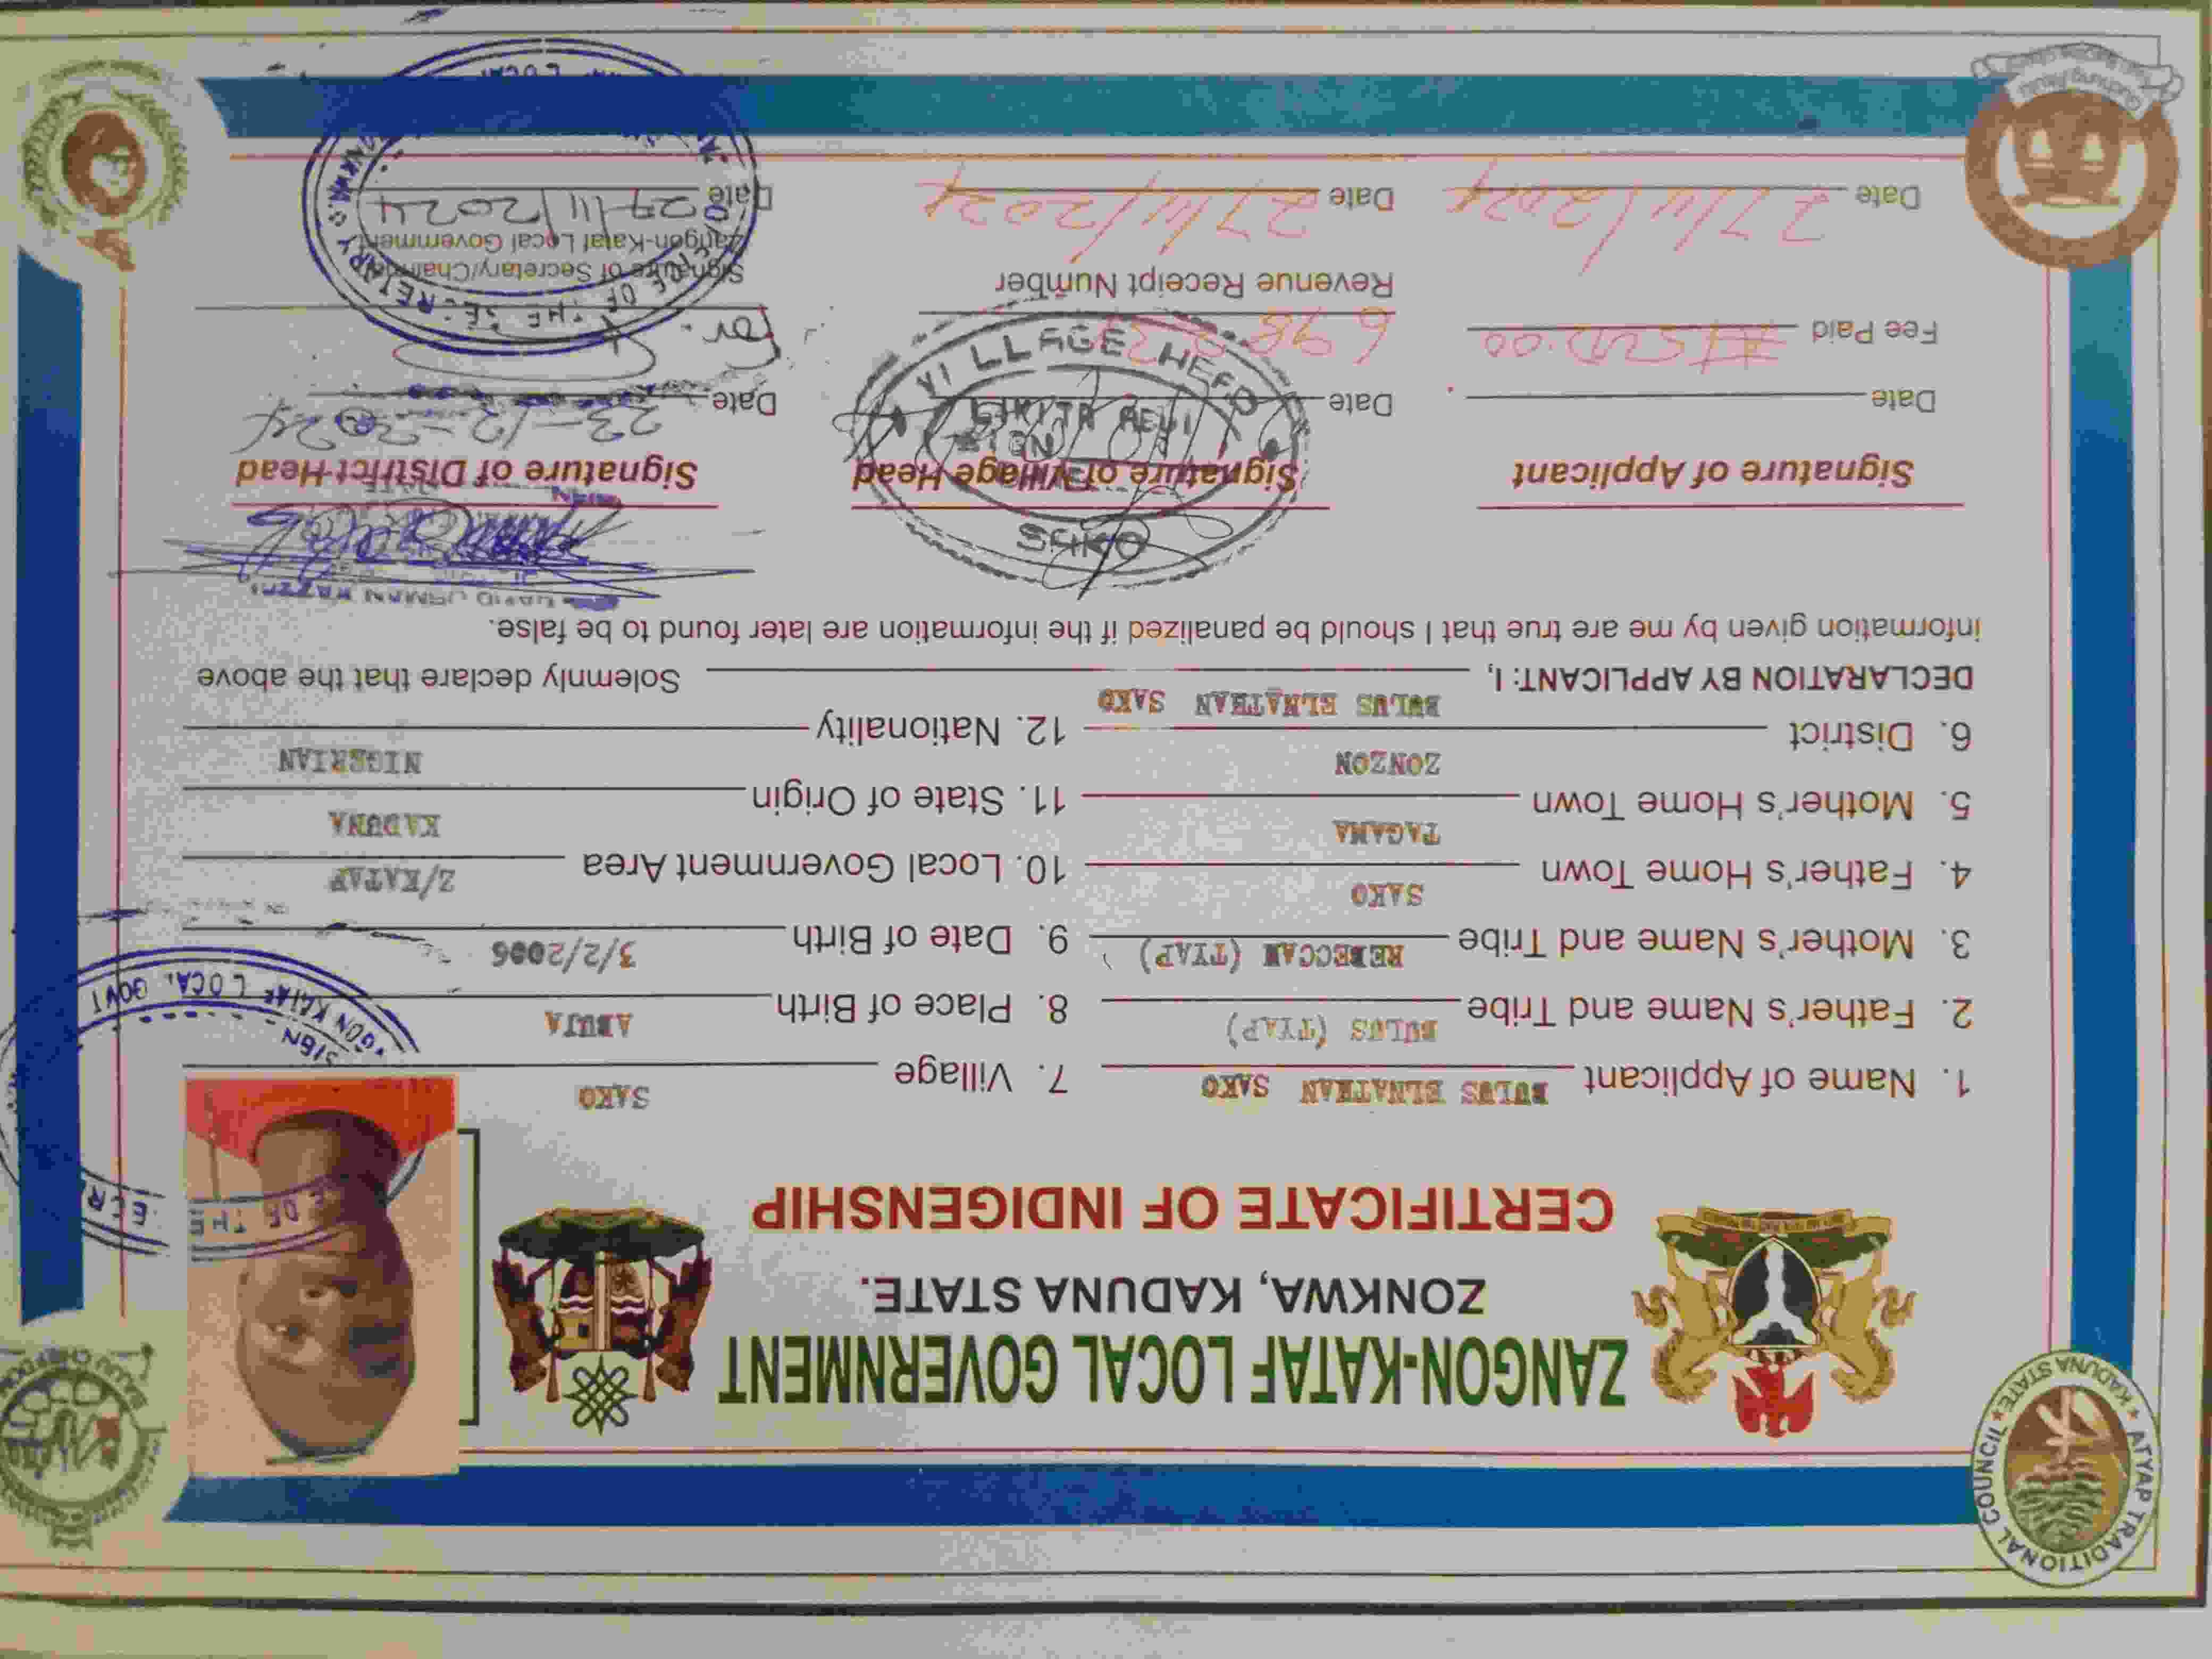 ATYAP TRADITIONAL COUNCIL ★ KADUNA STATE ★
ZANGON-KATAF LOCAL GOVERNMENT
ZONKWA, KADUNA STATE.
CERTIFICATE OF INDIGENSHIP
OF THE
1. Name of Applicant BULUS ELNATHAN SAKO 7. Village SAKO
2. Father's Name and Tribe BULUS (TYAP) 8. Place of Birth ABUJA
3. Mother's Name and Tribe REBECCAH (TYAP) 9. Date of Birth 3/2/2006
4. Father's Home Town SAKO 10. Local Government Area Z/KATAF
5. Mother's Home Town TAGAMA 11. State of Origin KADUNA
6. District ZONZON 12. Nationality NIGERIAN
SIGN
GON KATAF LOCAL GOVT
DECLARATION BY APPLICANT: I, BULUS ELNATHAN SAKO Solemnly declare that the above
information given by me are true that I should be panalized if the information are later found to be false.
SAKO
Signature of Applicant Signature of Village Head Signature of District Head
SIGN
VILLAGE HEAD
Date Date Date 23-12-2024
Fee Paid ₦500.00
Revenue Receipt Number
For:
Signature of Secretary/Chairman
Zangon-Kataf Local Government
Date 27/11/2024 Date 27/11/2024 Date 27/11/2024
OF THE SECRETARY